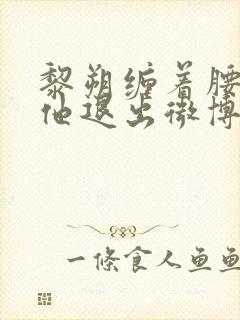 黎朔缠着腰
他退出微博
一條食人鱼鱼